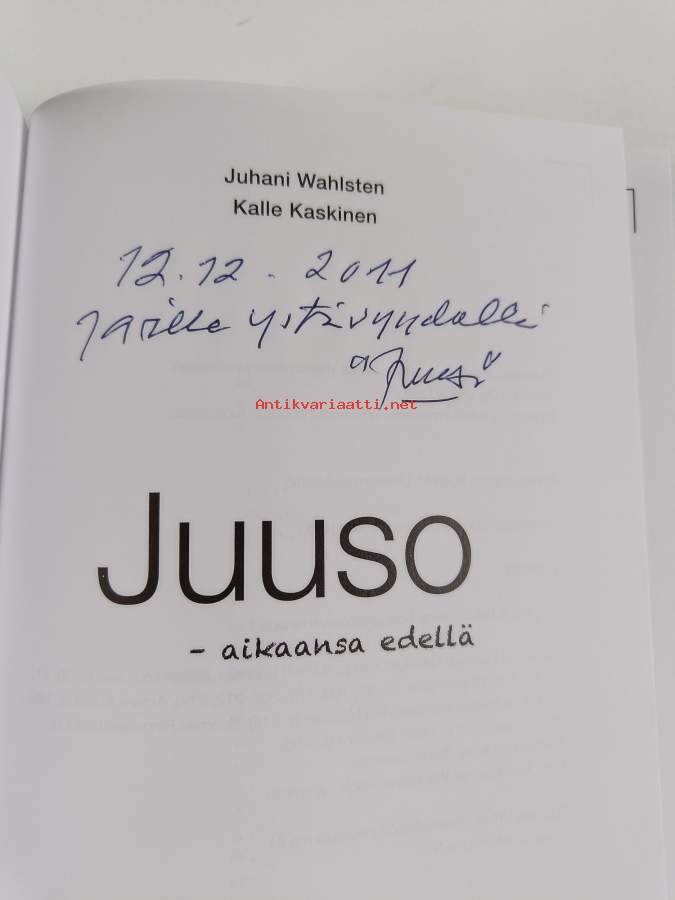 Juhani Wahlsten
Kalle Kaskinen
12.12. 2011
Jarille ystävyydellä
"Juuso"
Antikvariaatti.net
Juuso
- aikaansa edellä